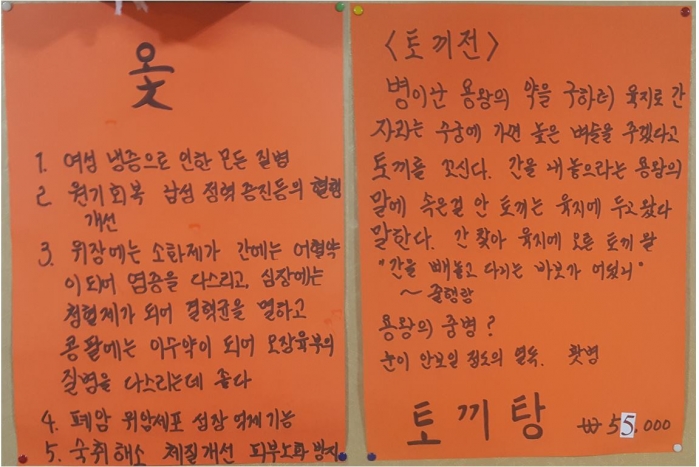 옻
1. 여성 냉증으로 인한 모든 질병
2. 원기회복 남성 정력 증진등의 혈행
개선
3. 위장에는 소화제가 간에는 어혈약
이 되어 염증을 다스리고, 심장에는
청혈제가 되어 결핵균을 멸하고
콩팥에는 이수약이 되어 오장육부의
질병을 다스리는데 좋다
4. 폐암 위암세포 성장 억제 기능
5. 숙취해소 체질개선 피부노화 방지
<토끼전>
병이난 용왕의 약을 구하러 육지로 간
자라는 수궁에 가면 높은 벼슬을 주겠다고
토끼를 꼬신다. 간을 내놓으라는 용왕의
말에 속은걸 안 토끼는 육지에 두고왔다
말한다. 간 찾아 육지에 오른 토끼 왈
"간을 빼놓고 다니는 바보가 어딨니"
~ 줄행랑
용왕의 중병?
눈이 안보일 정도의 열독. 홧병
토끼탕 ₩55,000